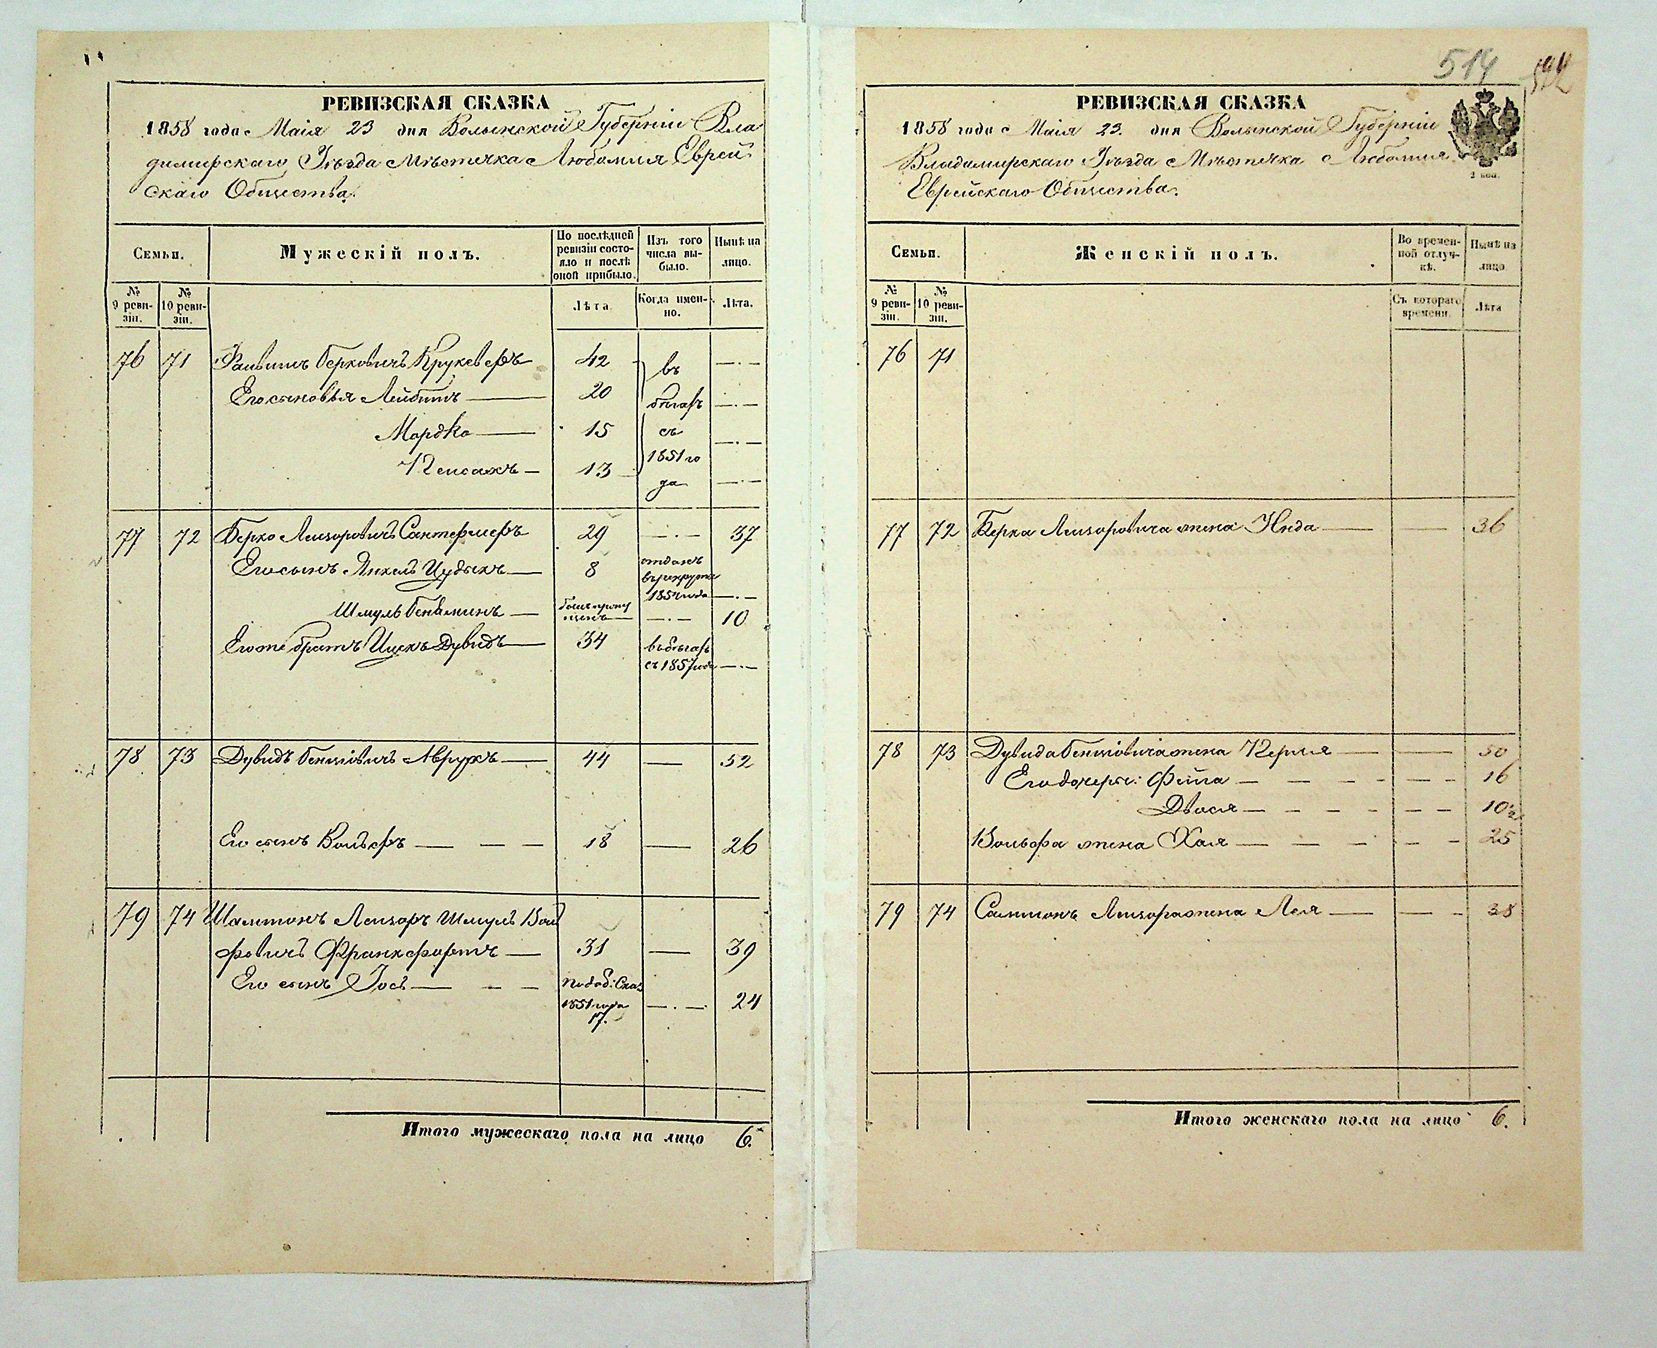 РЕВИЗСКАЯ СКАЗКА
1858 года Маія 23 дня Волынской Губерніи Вла
димирскаго Уѣзда Мѣстечка Любомля Еврей
скаго Общества.
Семьи.
Мужескій полъ.
По послѣдней ревизіи состояло и послѣ оной прибыло.
Изъ того числа выбыло.
Нынѣ на лицо.
№ 9 ревизіи.
№ 10 ревизіи.
Лѣта.
Когда именно.
Лѣта.
76 71 Файвишъ Берковичъ Крукеверъ 42 въ
Его сыновья Лейбишъ 20 бѣгах
Мордко 15 съ
Пейсахъ 13 1851 го
да
77 72 Берко Лейзоровичъ Сантермеръ 29 37
Его сынъ Янкель Иудыкъ 8 отданъ
в рекруты
185 года
Шмуль Беньминъ былъ пропу
щенъ 10
Его же братъ Ицекъ Дувидъ 34 въ бѣгах
съ 1857 года
78 73 Дувидъ Бенціовичъ Аврухъ 44 52
Его сынъ Вольфъ 18 26
79 74 Шамшонъ Лейзоръ Шмуль Воль
фовичъ Франкфортъ 31 39
Его сынъ Іось по доб: Сказ
1851 года 24
17.
Итого мужескаго пола на лицо 6.
514
РЕВИЗСКАЯ СКАЗКА
1858 года Маія 23. дня Волынской Губерніи
Владимирскаго Уѣзда Мѣстечка Любомля
Еврейскаго Общества.
Семьи.
Женскій полъ.
Во временной отлучкѣ.
Нынѣ на лицо.
№ 9 ревизіи.
№ 10 ревизіи.
Съ котораго времени.
Лѣта
76 71
77 72 Берка Лейзоровича жена Нида 36
78 73 Дувида Бенціовича жена Перля 50
Его дочери: Фейга 16
Двося 10½
Вольфа жена Хая 25
79 74 Самшонъ Лейзора жена Лея 38
Итого женскаго пола на лицо 6.